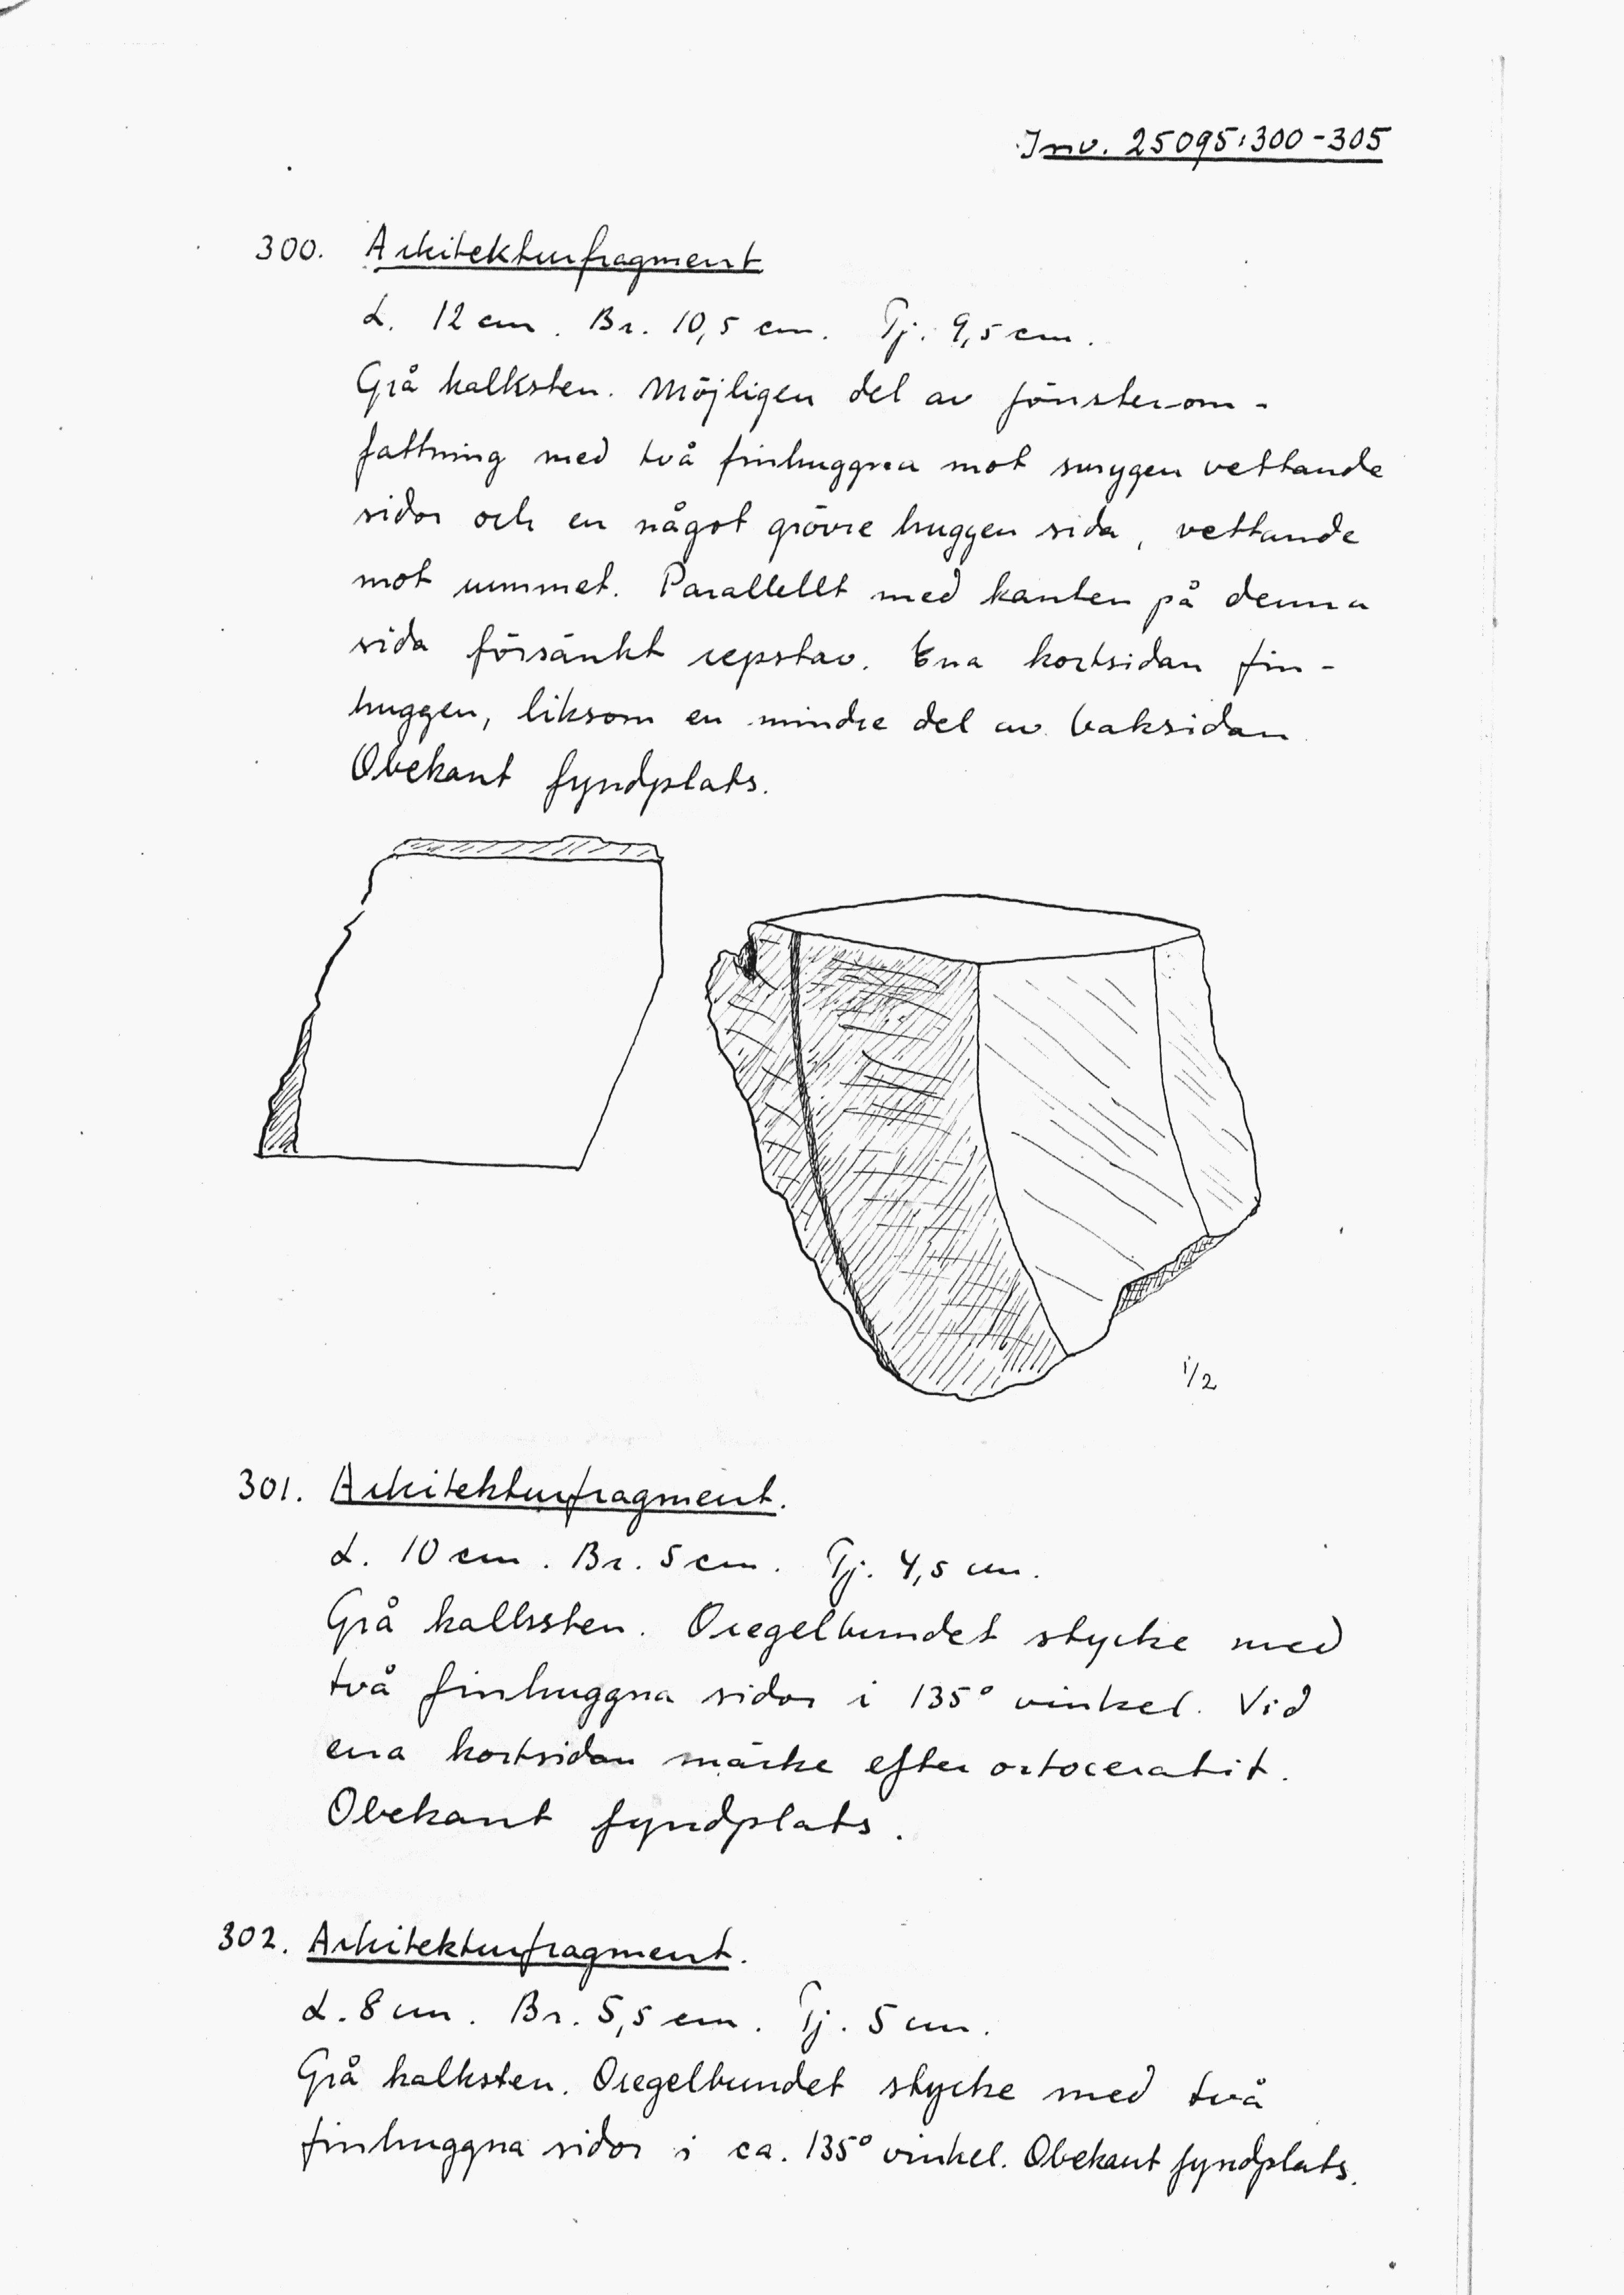 Inv. 25095:300-305
300. Arkitekturfragment
L. 12 cm. Br. 10,5 cm. Tj. 9,5 cm.
Grå kalksten. Möjligen del av fönsterom-
fattning med två finhuggna mot smygen vettande
sidor och en något grövre huggen sida, vettande
mot rummet. Parallellt med kanten på denna
sida försänkt repstav. Ena kortsidan fin-
huggen, liksom en mindre del av baksidan
Obekant fyndplats.
1/2
301. Arkitekturfragment.
L. 10 cm. Br. 5 cm. Tj. 4,5 cm.
Grå kalksten. Oregelbundet stycke med
två finhuggna sidor i 135° vinkel. Vid
ena kortsidan märke efter ortoceratit.
Obekant fyndplats.
302. Arkitekturfragment.
L. 8 cm. Br. 5,5 cm. Tj. 5 cm.
Grå kalksten. Oregelbundet stycke med två
finhuggna sidor i ca. 135° vinkel. Obekant fyndplats.